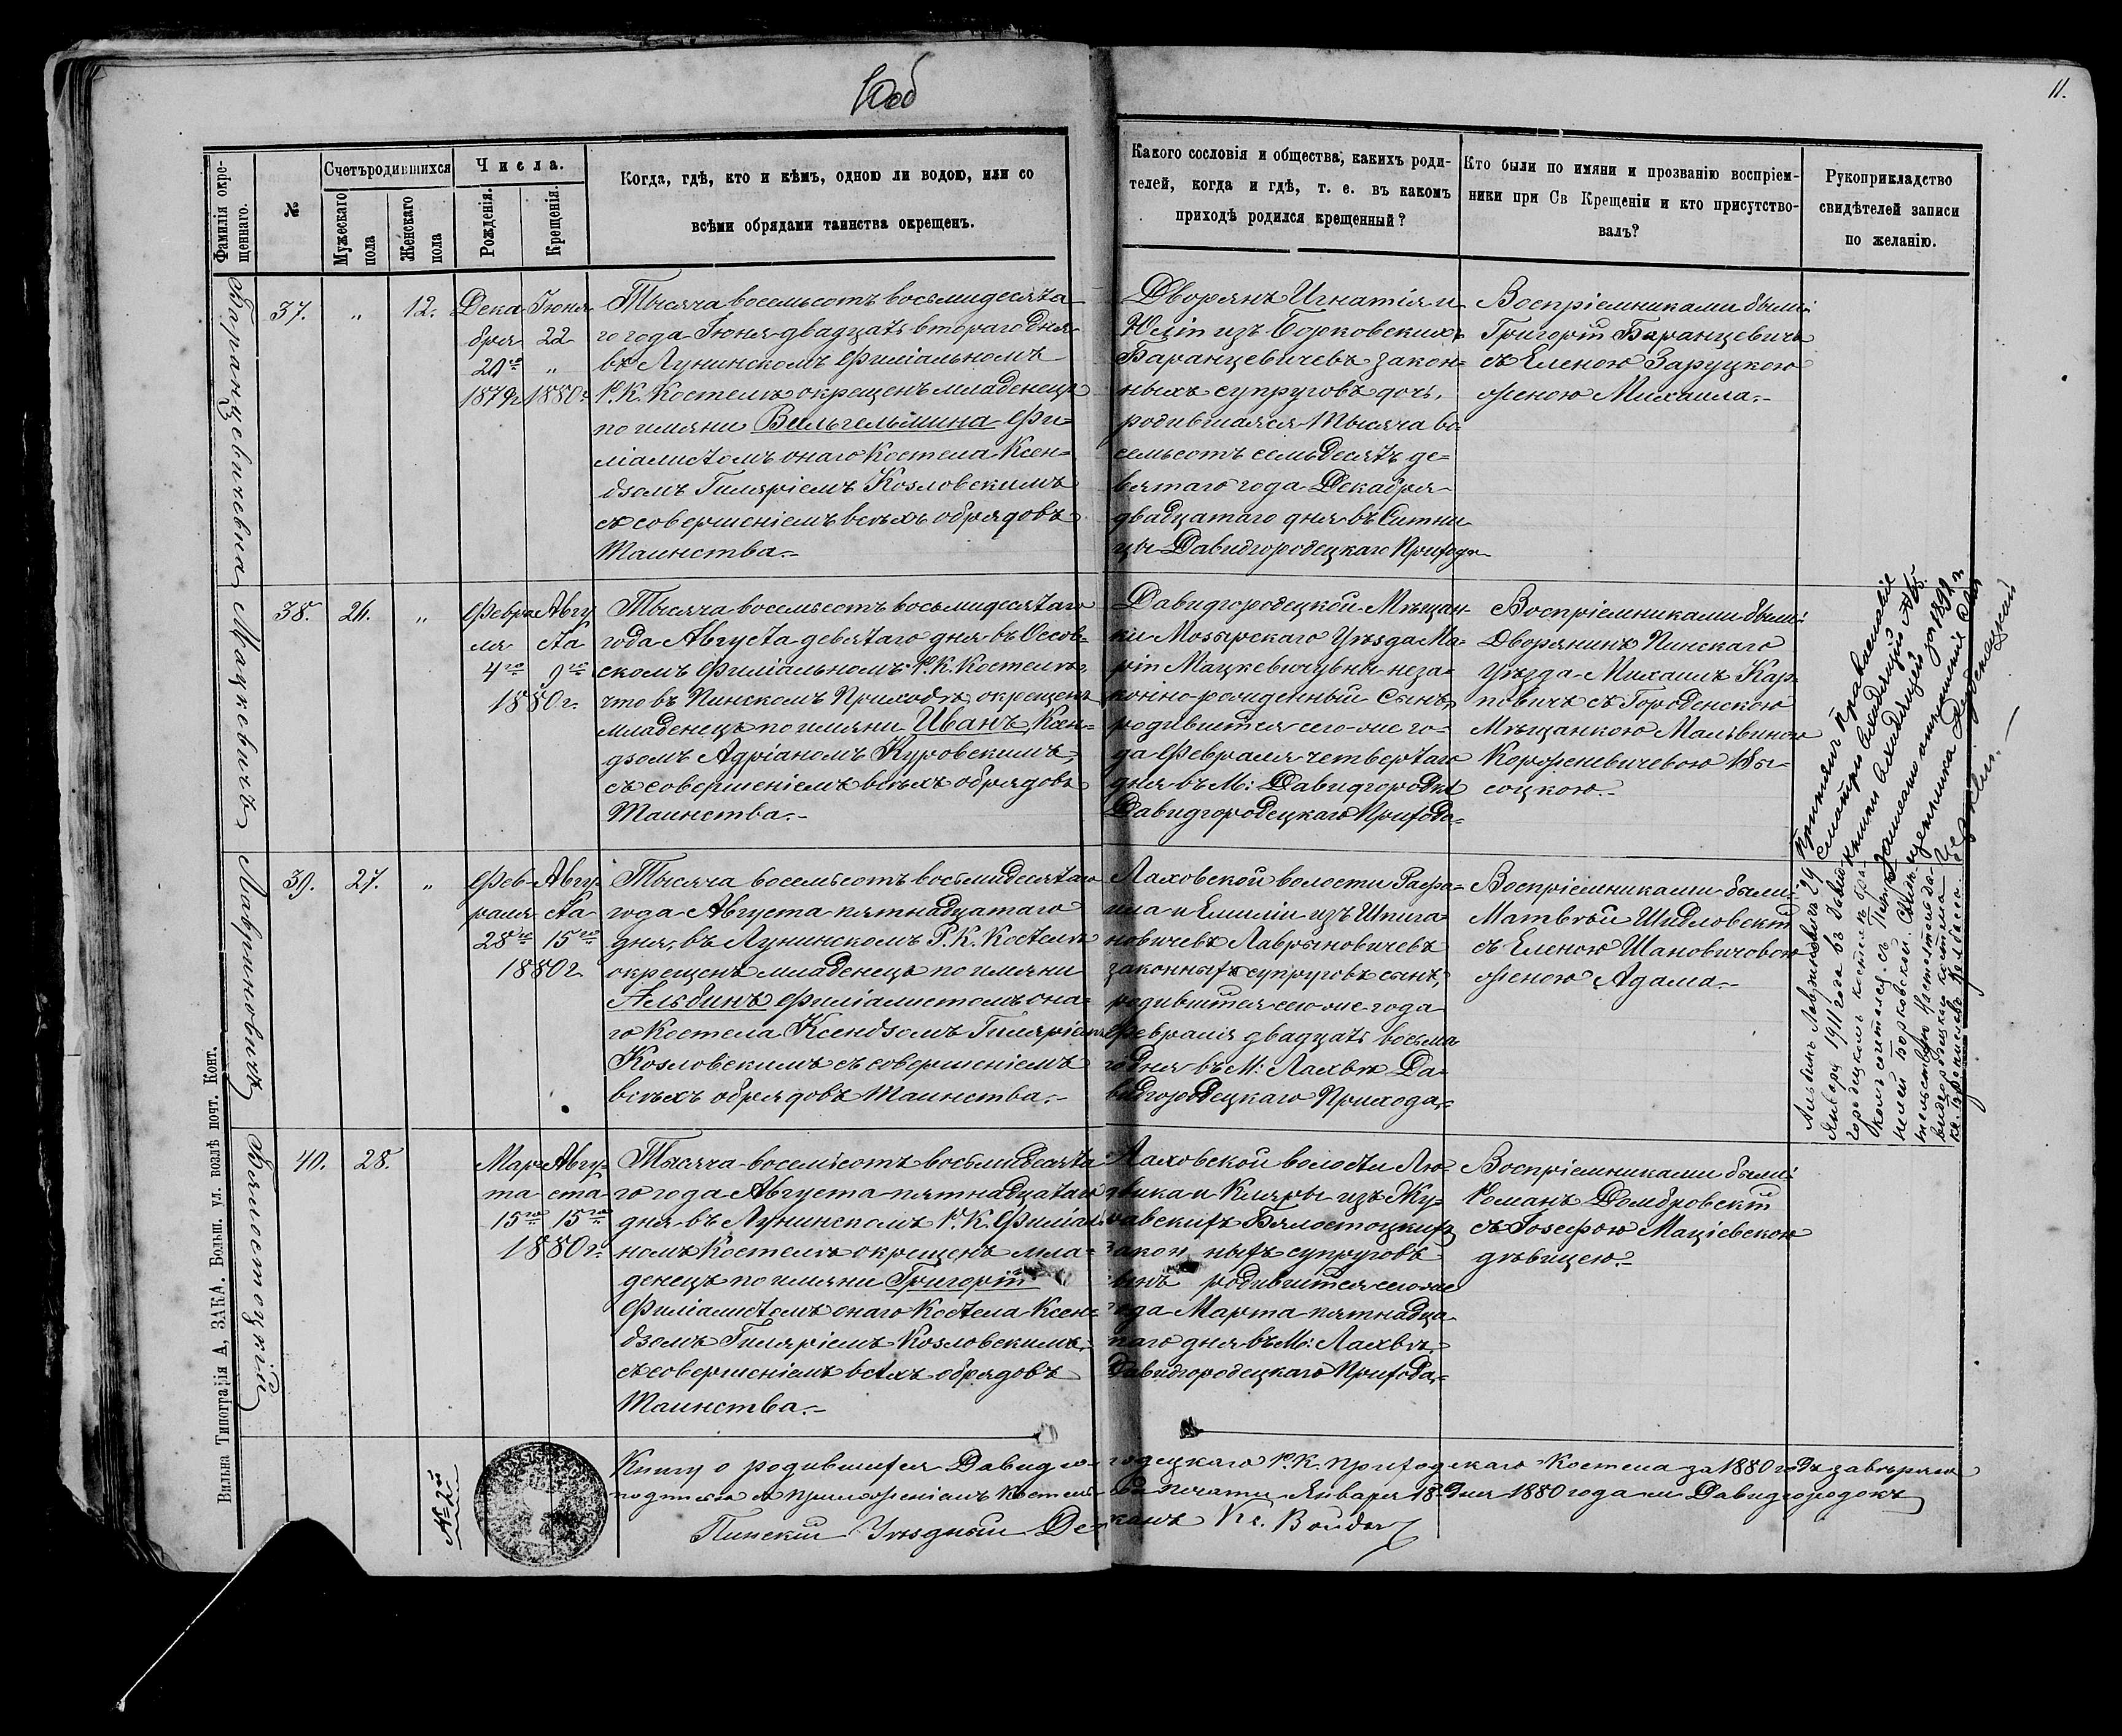 10об
11.
Фамилія окрещеннаго.
№
Счетъ родившихся
Мужескаго пола
Женскаго пола
Числа.
Рожденія.
Крещенія.
Когда, гдѣ, кто и кѣмъ, одною ли водою, или со
всѣми обрядами таинства окрещенъ.
Какого сословія и общества, какихъ роди-
телей, когда и гдѣ, т. е. въ какомъ
приходѣ родился крещенный?
Кто были по имяни и прозванію воспріем-
ники при Св Крещеніи и кто присутство-
валъ?
Рукоприкладство
свидѣтелей записи
по желанію.
Баранцевичевна
37.
"
12.
Дека
бря
20го
1879г.
Іюня
22
"
1880г.
Тысяча восемьсотъ восьмидесята
го года Іюня двадцать втораго дня
въ Лунинскомъ Филіальномъ
Р. К. Костелѣ окрещенъ младенецъ
по имяни Вильгельмина Фи=
ліалистомъ онаго Костела Ксен=
дзомъ Гиляріемъ Козловскимъ
съ совершеніемъ всѣхъ обрядовъ
Таинства.-
Дворянъ Игнатія и
Юліи изъ Борковскихъ
Баранцевичевъ закон=
ныхъ супруговъ дочь,
родившаяся тысяча во
семьсотъ семьдесятъ де=
вятаго года Декабря
двадцатаго дня въ Ситни
цы Давидгородецкаго Прихода
Воспріемниками были:
Григорій Баранцевичъ
съ Еленою Заруцкою
женою Михаила.-
Мацкевичъ
38.
26.
"
Февра
ля
4го
Авгу
ста
9го
1880г.
Тысяча восемьсотъ восьмидесятаго
года Августа девятаго дня въ Осов=
скомъ Филіальномъ Р. К. Костелѣ,
что въ Пинскомъ Приходѣ окрещенъ
младенецъ по имяни Иванъ, Ксен=
дзомъ Адріаномъ Куровскимъ,
съ совершеніемъ всѣхъ обрядовъ
Таинства.-
Давидгородецкой Мѣщан
ки Мозырскаго Уѣзда Ма=
ріи Мацкевичувны неза=
конно-рожденный Сынъ,
родившійся сего-же го=
да Февраля четвертаго
дня въ М: Давидгородкѣ
Давидгородецкаго Прихода.
Воспріемниками были:
Дворянинъ Пинскаго
Уѣзда Михаилъ Кар=
повичъ съ Городенскою
Мѣщанкою Мальвиною
Короженевичевою Вы=
соцкою.-
Лавриновичъ
39.
27.
"
Фев=
раля
28го
Авгу=
ста
15го
1880г.
Тысяча восемьсотъ восьмидесятаго
года Августа пятнадцатаго
дня, въ Лунинскомъ Р. К. Костелѣ
окрещенъ младенецъ по имяни
Альбинъ Филіалистомъ она=
го Костела Ксендзомъ Гиляріемъ
Козловскимъ съ совершеніемъ
всѣхъ обрядовъ Таинства.-
Лаховской волости Рафа=
ила и Емиліи изъ Шпига=
новичевъ Лавриновичевъ
законныхъ супруговъ сынъ,
родившійся сего-же года
Февраля двадцать восьма
го дня въ М: Лахвѣ Да=
видгородецкаго Прихода.
Воспріемниками были:
Матвѣй Шидловскій
съ Еленою Шановичовою
женою Адама.-
Января 1911 года въ Давид
городецкомъ костелѣ
Борковской.
Бѣлостоцкій
40.
28.
Мар=
та
15го
Авгу=
ста
15го
1880г.
Тысяча восемьсотъ восьмидесята
го года Августа пятнадцатаго
дня въ Лунинскомъ Р. К. Филіаль
номъ Костелѣ окрещенъ мла=
денецъ по имяни Григорій
Филіалистомъ онаго Костела Ксен=
дзомъ Гиляріемъ Козловскимъ,
съ совершеніемъ всѣхъ обрядовъ
Таинства.-
Лаховской волости Лю=
двика и Кляры изъ Жу=
равскихъ Бялостоцкихъ
законныхъ супруговъ
сынъ родившійся сего-же
года Марта пятнадца
таго дня въ М: Лахвѣ
Давидгородецкаго Прихода.
Воспріемниками были:
Романъ Домбровскій
съ Іозефою Маціевскою
дѣвицею.-
№ 2й
Книгу о родившихся Давидгородецкаго Р. К. Приходскаго Костела за 1880 годъ завѣряю
подписью съ приложеніемъ Костельной печати Января 18 Дня 1880 года м Давидгородокъ
Пинскій Уѣздный Деканъ Кс. Войда
Вильна Типографія А, ЗАКА. Больш. ул. возлѣ почт. Конт.